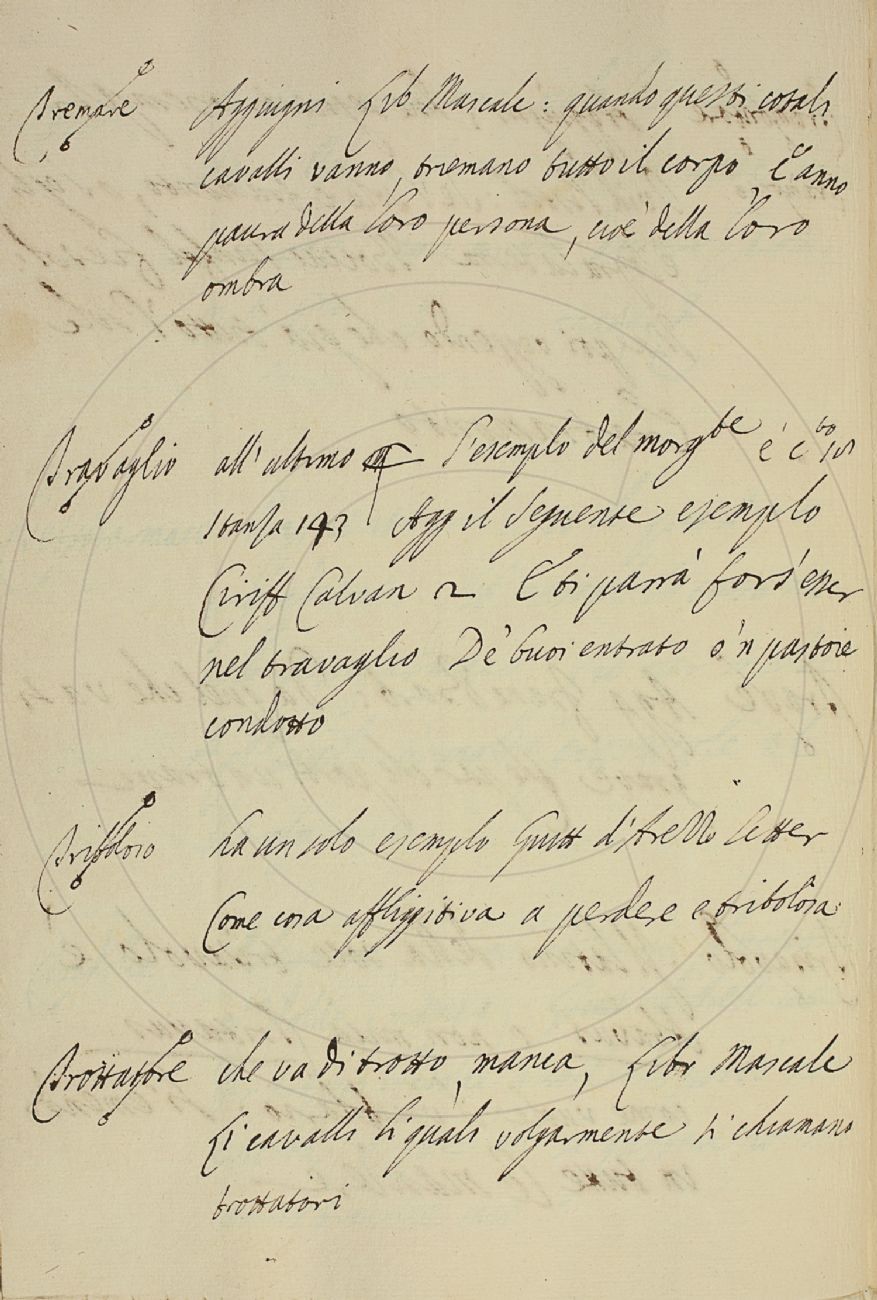 Tremare Aggiugni Lib Mascalc: quando questi cotali
cavalli vanno, triemano tutto il corpo, e anno
paura della loro persona, cioè della loro
ombra
Travaglio all'ultimo L'esemplo del morgte è cto 18
stanza 143 Agg il seguente esemplo
Ciriff Calvan 2 E ti parrà fors'esser
nel travaglio De' buoi entrato o 'n pastoie
condotto
Triboloso ha un solo esemplo Guitt d'Arezzo letter
Come cosa affliggitiva a perdere e tribolosa
Trottatore che va di trotto, manca, Libr Mascalc
Li cavalli li quali volgarmente si chiamano
trottatori